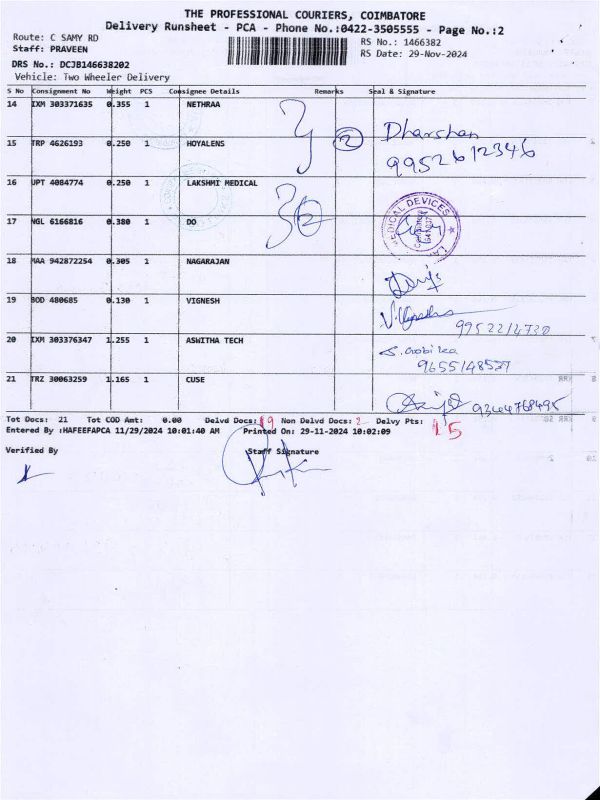 THE PROFESSIONAL COURIERS, COIMBATORE
Delivery Runsheet - PCA - Phone No.:0422-3505555 - Page No.:2
Route: C SAMY RD
RS No.: 1466382
Staff: PRAVEEN
RS Date: 29-Nov-2024
DRS No.: DCJB146638202
Vehicle: Two Wheeler Delivery
S No Consignment No Weight PCS Consignee Details Remarks Seal & Signature
14 IXM 303371635 0.355 1 NETHRAA
Dharshan
15 TRP 4626193 0.250 1 HOYALENS 2
9952612346
16 UPT 4084774 0.250 1 LAKSHMI MEDICAL
MEDICAL DEVICES
17 NGL 6166816 0.380 1 DO
18 MAA 942872254 0.305 1 NAGARAJAN
19 BOD 480685 0.130 1 VIGNESH
9952214730
20 IXM 303376347 1.255 1 ASWITHA TECH
9655148527
21 TRZ 30063259 1.165 1 CUSE
9344768495
Tot Docs: 21 Tot COD Amt: 0.00 Delvd Docs: 19 Non Delvd Docs: 2 Delvy Pts: 15
Entered By :HAFEEFAPCA 11/29/2024 10:01:40 AM Printed On: 29-11-2024 10:02:09
Verified By Staff Signature